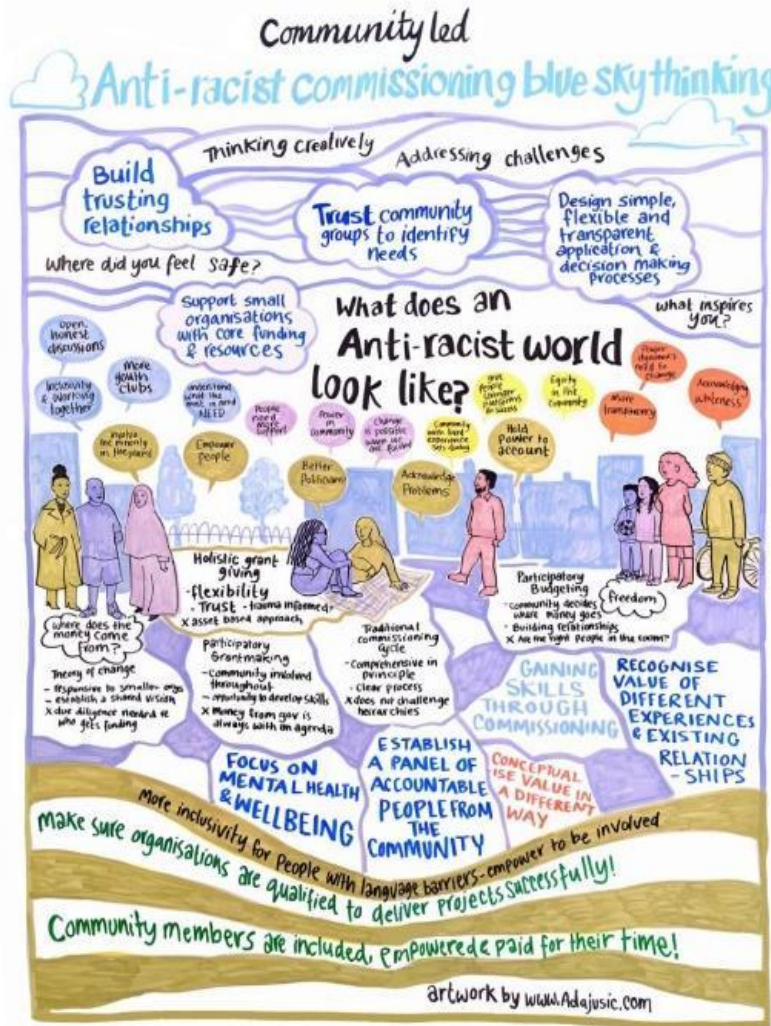 Community led
Anti-racist commissioning blue sky thinking
Thinking creatively
Addressing challenges
Build
trusting
relationships
Trust community
groups to identify
needs
Design simple,
flexible and
transparent
application &
decision making
processes
Where did you feel safe?
What inspires
you?
Support small
organisations
with core funding
& resources
What does an
Anti-racist world
look like?
Open,
honest
discussions
More
youth
clubs
Inclusivity
& working
together
understand
what the
most in need
NEED
Involve
the minority
in the plans
Empower
people
People
need
more
support
Power
in
community
Better
Politicians
Change
is possible
when we
are
Community
with lived
experience
Acknowledge
Problems
people
platforms
Hold
Power to
account
Equity
in the
community
More
transparency
Power
dynamics
need to
change
Acknowledging
whiteness
Holistic grant
giving
- flexibility
- Trust - trauma informed?
x asset based approach
Where does the
money come
from?
Theory of change
- responsive to smaller orgs
- establish a shared vision
x due diligence needed re
who gets funding
Participatory
Grantmaking
- Community involved
throughout
- opportunity to develop skills
x Money from gov is
always with an agenda
Traditional
commissioning
cycle
- Comprehensive in
principle
- Clear process
x does not challenge
heirarchies
Participatory
Budgeting
- Community decides
where money goes
- Building relationships
x Are the right people in the room?
freedom
GAINING
SKILLS
THROUGH
COMMISSIONING
RECOGNISE
VALUE OF
DIFFERENT
EXPERIENCES
& EXISTING
RELATION
-SHIPS
FOCUS ON
MENTAL HEALTH
& WELLBEING
ESTABLISH
A PANEL OF
ACCOUNTABLE
PEOPLE FROM
THE
COMMUNITY
CONCEPTUAL
ISE VALUE IN
A DIFFERENT
WAY
More inclusivity for people with language barriers - empower to be involved
Make sure organisations are qualified to deliver projects successfully!
Community members are included, empowered & paid for their time!
artwork by www.Adajusic.com